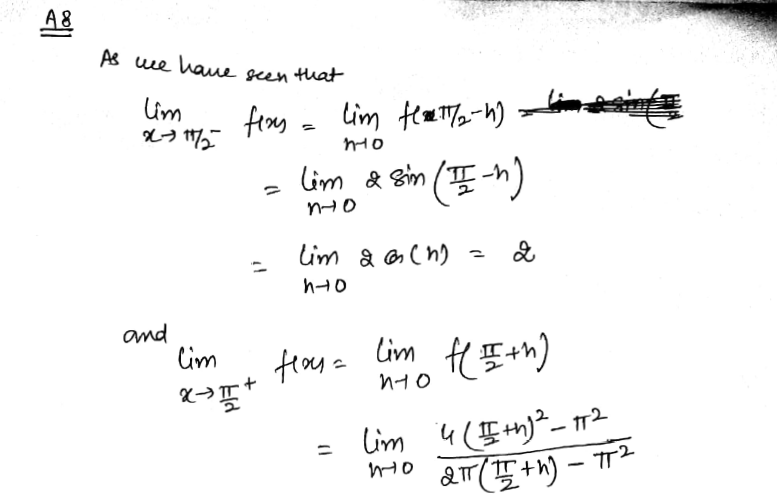 A8
As we have seen that
lim x→π/2⁻ f(x) = lim h→0 f(π/2-h)
= lim h→0 2 sin (π/2 -h)
= lim h→0 2 cos(h) = 2
and
lim x→π/2⁺ f(x) = lim h→0 f(π/2+h)
= lim h→0 4(π/2+h)² - π² / 2π(π/2+h) - π²